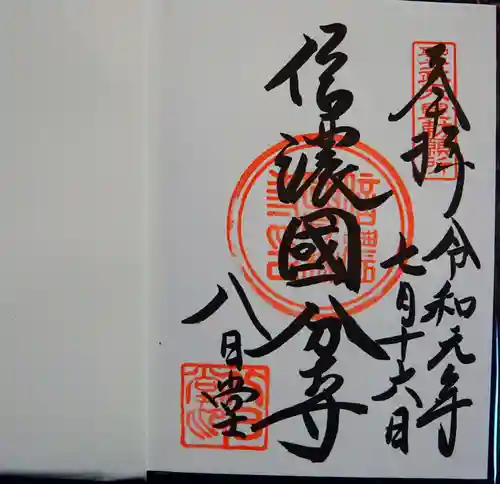 奉拝
令和元年
七月十六日
信濃國分寺
八日堂